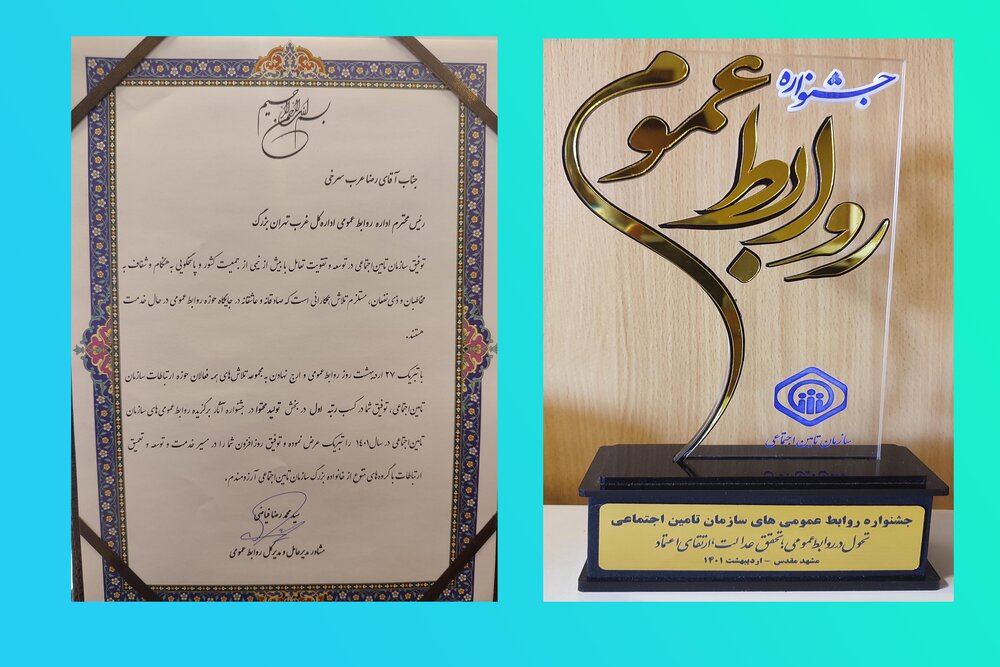 بسم الله الرحمن الرحیم
جناب آقای رضا عرب سرخی
رئیس محترم اداره روابط عمومی اداره کل غرب تهران بزرگ
توفیق سازمان تامین اجتماعی در توسعه و تقویت تعامل با بیش از نیمی از جمعیت کشور و پاسخگویی به هنگام و شفاف به
مخاطبان و ذی نفعان، مستلزم تلاش همکارانی است که صادقانه و عاشقانه در جایگاه حوزه روابط عمومی در حال خدمت
هستند.
با تبریک ۲۷ اردیبهشت روز روابط عمومی و ارج نهادن به مجموعه تلاش‌های همه فعالان حوزه ارتباطات سازمان
تامین اجتماعی، توفیق شما در کسب رتبه اول در بخش تولید محتوا در جشنواره آثار برگزیده روابط عمومی های سازمان
تامین اجتماعی در سال ۱۴۰۱ را تبریک عرض نموده و توفیق روز افزون شما را در مسیر خدمت و توسعه و تعمیق
ارتباطات با گروه های متنوع از خانواده بزرگ سازمان تامین اجتماعی آرزومندم.
سید محمدرضا فیاضی
مشاور مدیرعامل و مدیرکل روابط عمومی
جشنواره
روابط عمومی
سازمان تامین اجتماعی
جشنواره روابط عمومی های سازمان تامین اجتماعی
تحول در روابط عمومی؛ تحقق عدالت، ارتقای اعتماد
مشهد مقدس - اردیبهشت ۱۴۰۱